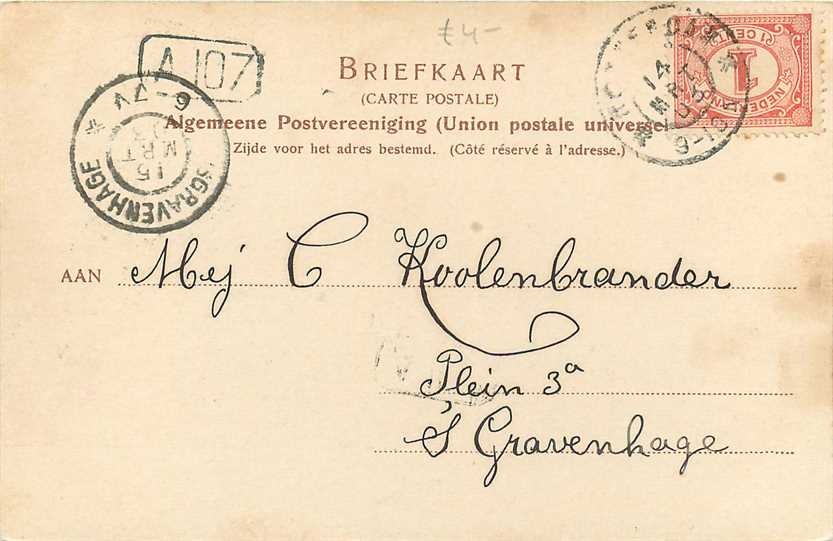 £4-
A 107
BRIEFKAART
(CARTE POSTALE)
Algemeene Postvereeniging (Union postale universe
Zijde voor het adres bestemd. (Côté réservé à l'adresse.)
6-7V
15
MRT
'SGRAVENHAGE
14
MRT
1 CENT
1
NEDERLAND
AAN Mej C Koolenbrander
Plein 3a
'S Gravenhage